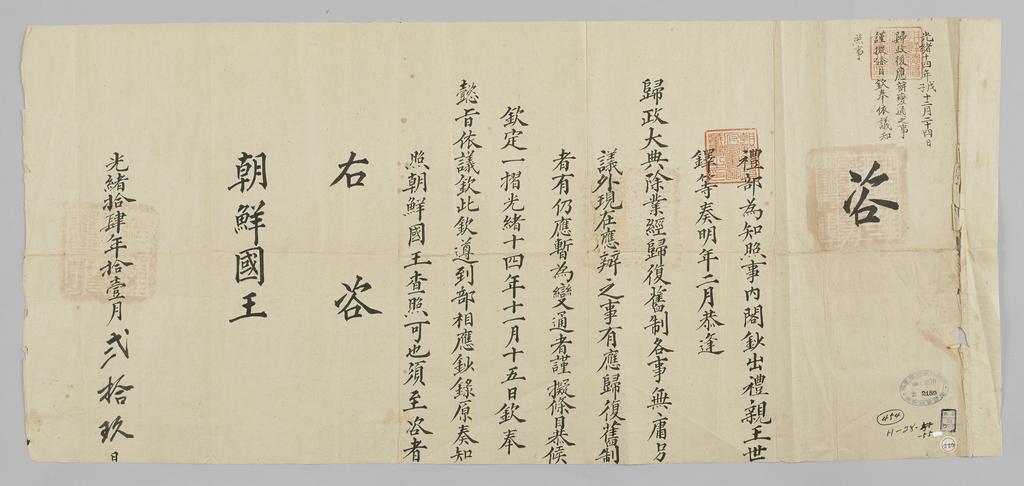 光緒十四年戊子十二月二十四日
歸政後應辦變通之事
謹擬條目欽奉依議知
照事
咨
禮部為知照事內閣鈔出禮親王世
鐸等奏明年二月恭逢
歸政大典除業經歸復舊制各事無庸另
議外現在應辦之事有應歸復舊制
者有仍應暫為變通者謹擬條目恭候
欽定一摺光緒十四年十一月十五日欽奉
懿旨依議欽此欽遵到部相應鈔錄原奏知
照朝鮮國王查照可也須至咨者
右咨
朝鮮國王
光緒拾肆年拾壹月貳拾玖日
2159
454
H-24-